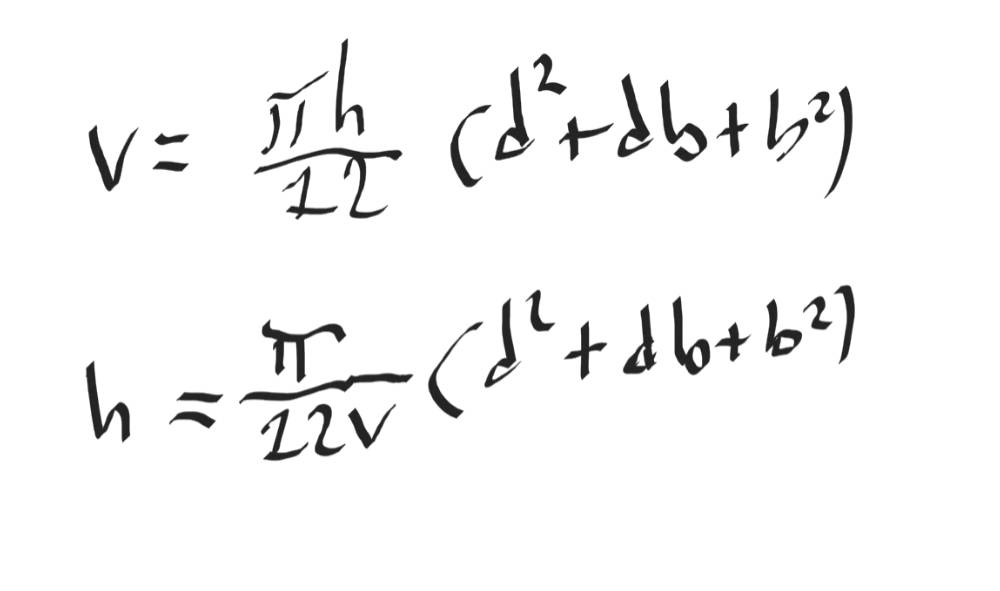 V = πh/12 (d²+db+b²)
h = π/12V (d²+db+b²)